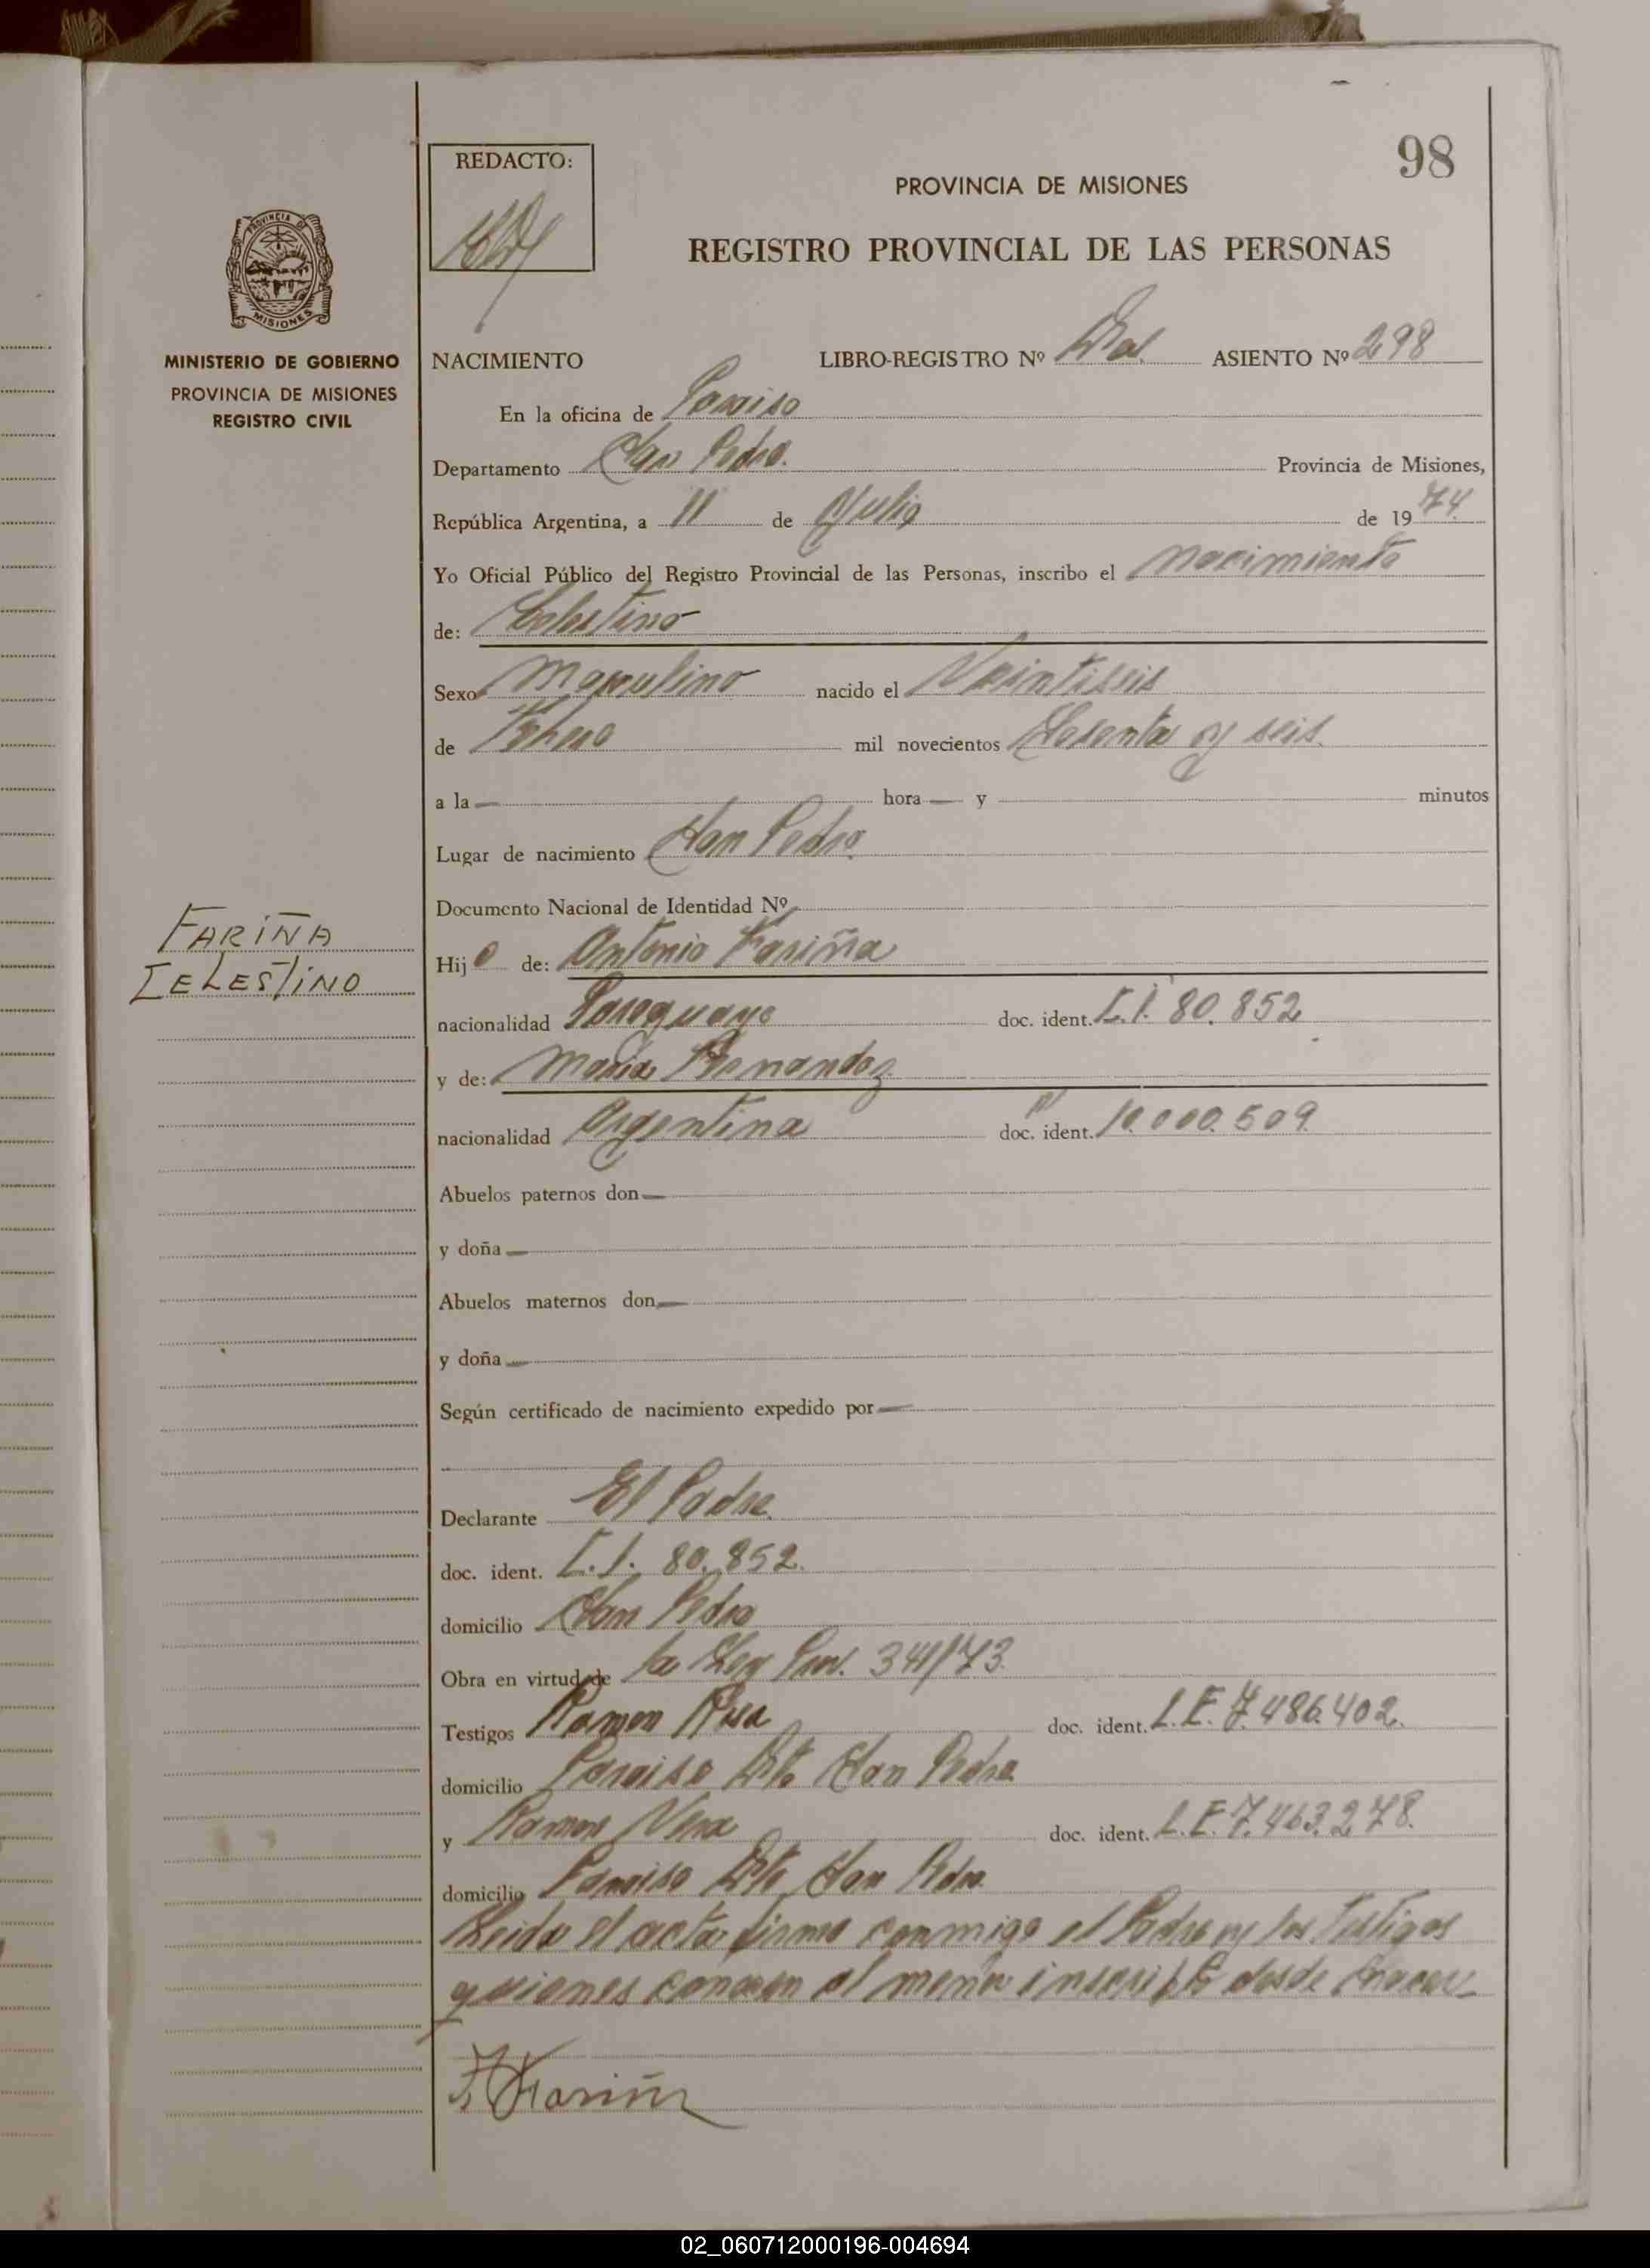 98
REDACTO:
PROVINCIA DE MISIONES
REGISTRO PROVINCIAL DE LAS PERSONAS
PROVINCIA DE
MISIONES
MINISTERIO DE GOBIERNO
PROVINCIA DE MISIONES
REGISTRO CIVIL
NACIMIENTO LIBRO-REGISTRO Nº ASIENTO Nº 298
En la oficina de Paraiso
Departamento San Pedro. Provincia de Misiones,
República Argentina, a 11 de Julio de 1974
Yo Oficial Público del Registro Provincial de las Personas, inscribo el nacimiento
de: Celestino
Sexo Masculino nacido el Veintiseis
de mil novecientos Sesenta y seis
a la — hora — y — minutos
Lugar de nacimiento San Pedro
Documento Nacional de Identidad Nº
FARIÑA
CELESTINO
Hijo de: Antonio Fariña
nacionalidad Paraguayo doc. ident. C.I. 80.852
y de: Maria
nacionalidad Argentina doc. ident. 10.000.509.
Abuelos paternos don —
y doña —
Abuelos maternos don —
y doña —
Según certificado de nacimiento expedido por —
Declarante El Padre
doc. ident. C.I. 80.852.
domicilio San Pedro
Obra en virtud de la Ley 341/73
Testigos Ramon doc. ident. L.E. 7.486.402.
domicilio Paraiso Dto San Pedro
y Ramon Vera doc. ident. L.E. 7.463.278.
domicilio Paraiso Dto San Pedro
Leida el acta firma conmigo el Padre y los Testigos
quienes conocen al menor inscripto desde nacer
Fariña
02_060712000196-004694